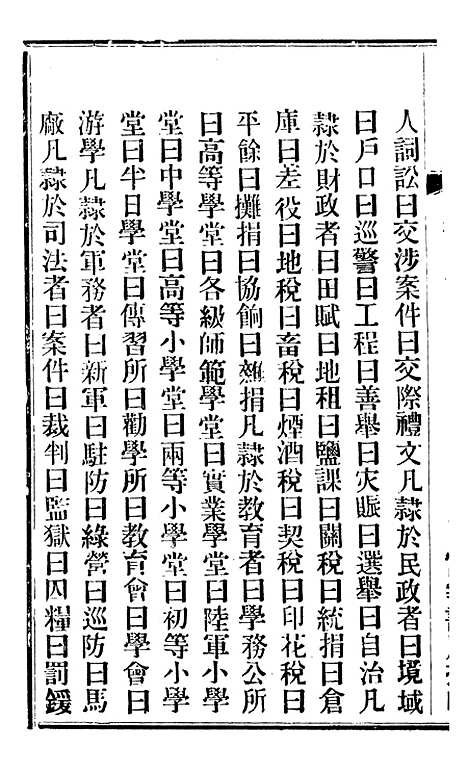 人詞訟曰交涉案件曰交際禮文凡隷於民政者曰境域
曰戶口曰巡警曰工程曰善舉曰灾賑曰選舉曰自治凡
隷於財政者曰田賦曰地租曰鹽課曰關稅曰統捐曰倉
庫曰差役曰地稅曰畜稅曰煙酒稅曰契稅曰印花稅曰
平餘曰攤捐曰協餉曰雜捐凡隷於教育者曰學務公所
曰高等學堂曰各級師範學堂曰實業學堂曰陸軍小學
堂曰中學堂曰高等小學堂曰兩等小學堂曰初等小學
堂曰半日學堂曰傳習所曰勸學所曰教育會曰學會曰
游學凡隷於軍務者曰新軍曰駐防曰綠營曰巡防曰馬
廠凡隷於司法者曰案件曰裁判曰監獄曰囚糧曰罰鍰